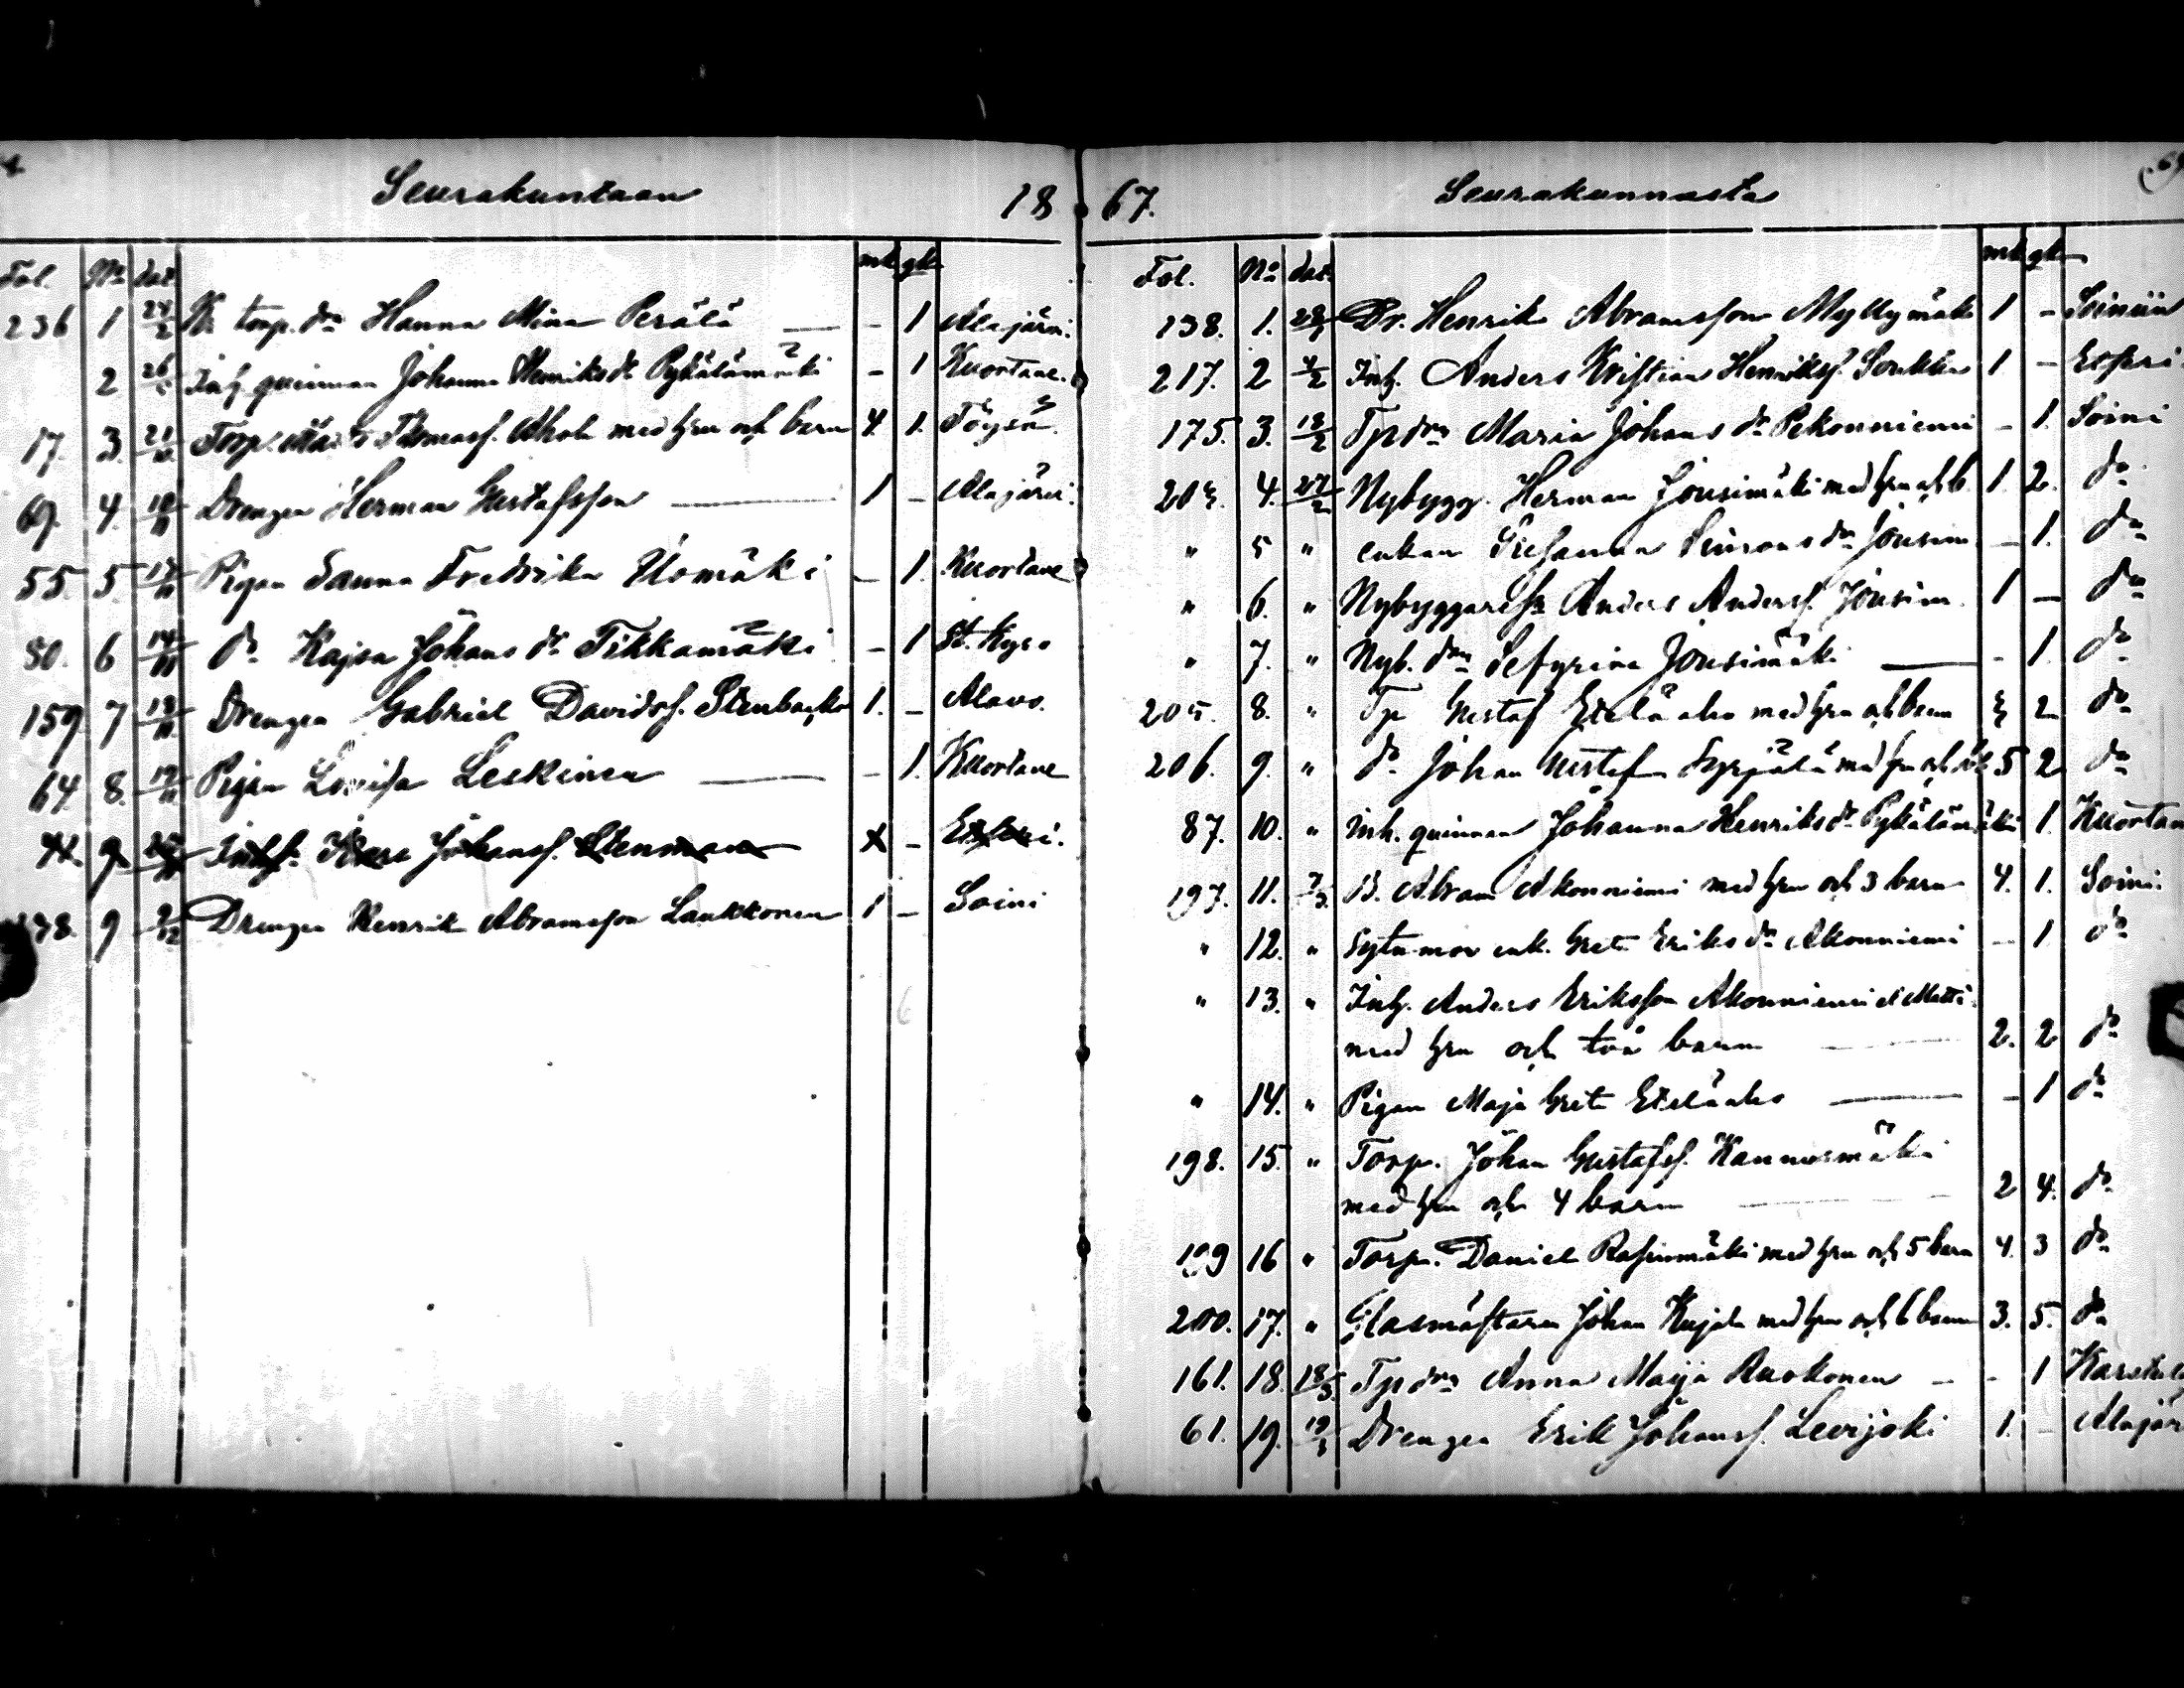 Seurakuntaan 18
Fol. No dat. mk gk
236 1 24/2 torp. dr Hanna Mina Perälä — - 1 Alajärvi.
2 Inh. quinnan Johanna Henriksdr Pykälämäki - 1 Kuortane.
17. 3. Torp. Thomasf. Ahola med hru och barn 4. 1. Töysä.
69. 4. Drengen Herman Gustafsson — 1 - Alajärvi.
55. 5 Pigan Sanna Fredrika Uomäki - 1. Kuortane
50. 6 14/11 do Kajsa Johans dr Tikkamäki - 1 St. Kyro
159 7 Drengen Gabriel Davidsf. Stenbacka 1. - Alavo.
64 8. Pigan Lovisa Leskinen — - 1. Kuortane
9 Johansf. Stenman -
9 2/12 Drengen Henrik Abramsson Laukkonen 1 - Soini
67. Seurakunnasta
Fol. No dat. mk gk
138. 1. Dr. Henrik Abramsson Myllymäki 1 - Soiniin
217. 2 4/2 Inh. Anders Kristian Henriksf. Soukka 1 - Etseri
175. 3. 13/2 Tpdrn Maria Johans dr Pekonniemi - 1. Soini
204. 4. 27/2 Nybygg. Herman Jousimäki med hru och b. 1. 2. do
" 5 " enkan Simons dr Jousim - 1. do
" 6. " Nybyggaress Anders Andersf. Jousim. 1 — do
" 7. " Nyb. drn Sefyrina Jousimäki — - 1. do
205. 8. " Tp Gustaf Eteläaho med hru och barn 2 do
206. 9. " do Johan Gustaf Syrjälä med hru och 5 2 do
87. 10. " Inh. quinnan Johanna Henriksdr Pykälämäki 1. Kuortan
197. 11. 7/3. B. Abram Akonniemi med hru och 3 barn 4. 1. Soini
" 12. " Sytn. mor enk. Greta Eriks dr Akonniemi - 1 do
" 13. " Inh. Anders Eriksson Akonniemi
med hru och två barn — 2. 2 do
" 14. " Pigan Maja Greta Eteläaho — - 1 do
198. 15. " Torp. Johan Gustafsf. Kannusmäki
med hru och 4 barn — 2 4. do
199 16 " Torp. Daniel med hru och 5 barn 4. 3 do
200. 17. " Glasmästaren Johan Kujala med hru och 6 barn 3. 5. do
161. 18. 18/3 Tpdrn Anna Maija Ruokonen - - 1 Karstula
61. 19. Drengen Erik Johansf. Levijoki 1. - Alajär